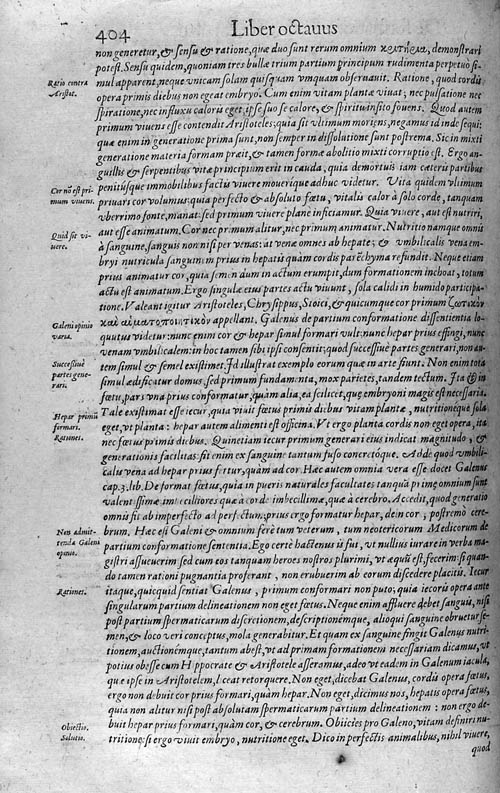 404 Liber octauus
non generetur, & sensu & ratione, quæ duo sunt rerum omnium κριτήρια, demonstrari
potest. Sensu quidem, quoniam tres bullæ trium partium principum rudimenta perpetuò si-
Ratio contra Aristot.
mul apparent, neque vnicam solam quisquam vmquam obseruauit. Ratione, quod cordis
opera primis diebus non egeat embryo. Cum enim vitam plantæ viuat, nec pulsatione nec
spiratione, nec influxu caloris eget, ipse suo se calore, & spiritu insito fouens. Quod autem
primum viuens esse contendit Aristoteles: quia sit vltimum moriens, negamus id inde sequi:
quæ enim in generatione prima sunt, non semper in dissolutione sunt postrema. Sic in mixti
generatione materia formam præit, & tamen formæ abolitio mixti corruptio est. Ergo an-
guillis & serpentibus vitæ principium erit in cauda, quia demortuis iam cæteris partibus
Cor nō est primum viuens.
penitúsque immobilibus factis viuere mouerique adhuc videtur. Vita quidem vltimum
priuari cor volumus: quia perfecto & absoluto fœtu, vitalis calor à solo corde, tanquam
vberrimo fonte, manat: sed primum viuere planè inficiamur. Quia viuere, aut est nutriri,
aut esse animatum. Cor nec primum alitur, nec primum animatur. Nutritio namque omnis
Quid sit viuere.
à sanguine, sanguis non nisi per venas: at venæ omnes ab hepate; & vmbilicalis vena em-
bryi nutricula sanguinem prius in hepatis quàm cordis parēchyma refundit. Neque etiam
prius animatur cor, quia semen dum in actum erumpit, dum formationem inchoat, totum
actu est animatum. Ergo singulæ eius partes actu viuunt, sola calidi in humido participa-
tione. Valeant igitur Aristoteles, Chrysippus, Stoici, & quicumque cor primum ζωτικὸν
Galeni opinio varia.
καὶ αἱματοποιητικὸν appellant. Galenus de partium conformatione dissentientia lo-
quutus videtur: nunc enim cor & hepar simul formari vult: nunc hepar prius effingi, nunc
venam vmbilicalem: in hoc tamen sibi ipsi consentit; quod successiuè partes generari, non au-
Successiuè partes generari.
tem simul & semel existimet. Id illustrat exemplo eorum quæ in arte fiunt. Non enim tota
simul ædificatur domus, sed primum fundamenta, mox parietes, tandem tectum. Ita & in
fœtu, pars vna prius conformatur, quàm alia, ea scilicet, quæ embryoni magis est necessaria.
Hepar primū formari. Rationes.
Tale existimat esse iecur, quia viuit fœtus primis diebus vitam plantæ, nutritionéque sola
eget, vt planta: hepar autem alimenti est officina. Vt ergo planta cordis non eget opera, ita
nec fœtus primis diebus. Quinetiam iecur primum generari eius indicat magnitudo, &
generationis facilitas: fit enim ex sanguine tantum fuso concretóque. Adde quod vmbili-
calis vena ad hepar prius fertur, quàm ad cor. Hæc autem omnia vera esse docet Galenus
cap. 3. lib. De format. fœtus, quia in pueris naturales facultates tanquam primigenium sunt
valentissimæ imbecilliores quæ à corde imbecillimæ, quæ à cerebro. Accedit, quod generatio
omnis fit ab imperfecto ad perfectum: prius ergo formatur hepar, dein cor, postremò cere-
Non admittenda Galeni opinio.
brum. Hæc est Galeni & omnium ferè tum veterum, tum neotericorum Medicorum de
partium conformatione sententia. Ego certè hactenus is fui, vt nullius iurare in verba ma-
gistri assueuerim: sed cum eos tanquam heroes nostros plurimi, vt æquū est, fecerim: si quan-
do tamen rationi pugnantia proferant, non erubuerim ab eorum discedere placitis. Iecur
Rationes.
itaque, quicquid sentiat Galenus, primum conformari non puto; quia iecoris opera ante
singularum partium delineationem non eget fœtus. Neque enim affluere debet sanguis, nisi
post partium spermaticarum discretionem, descriptionémque, alioqui sanguine obruetur se-
men, & loco veri conceptus, mola generabitur. Et quam ex sanguine fingit Galenus nutri-
tionem, auctionémque, tantum abest, vt ad primam formationem necessariam dicamus, vt
potius obesse cum Hippocrate & Aristotele asseramus, adeo vt eadem in Galenum iacula,
quæ ipse in Aristotelem, liceat retorquere. Non eget, dicebat Galenus, cordis opera fœtus,
ergo non debuit cor prius formari, quàm hepar. Non eget, dicimus nos, hepatis opera fœtus,
quia non alitur nisi post absolutam spermaticarum partium delineationem: non ergo de-
Obiectio. Solutio.
buit hepar prius formari, quàm cor, & cerebrum. Obiicies pro Galeno, vitam definiri nu-
tritione: si ergo viuit embryo, nutritione eget. Dico in perfectis animalibus, nihil viuere,
quod